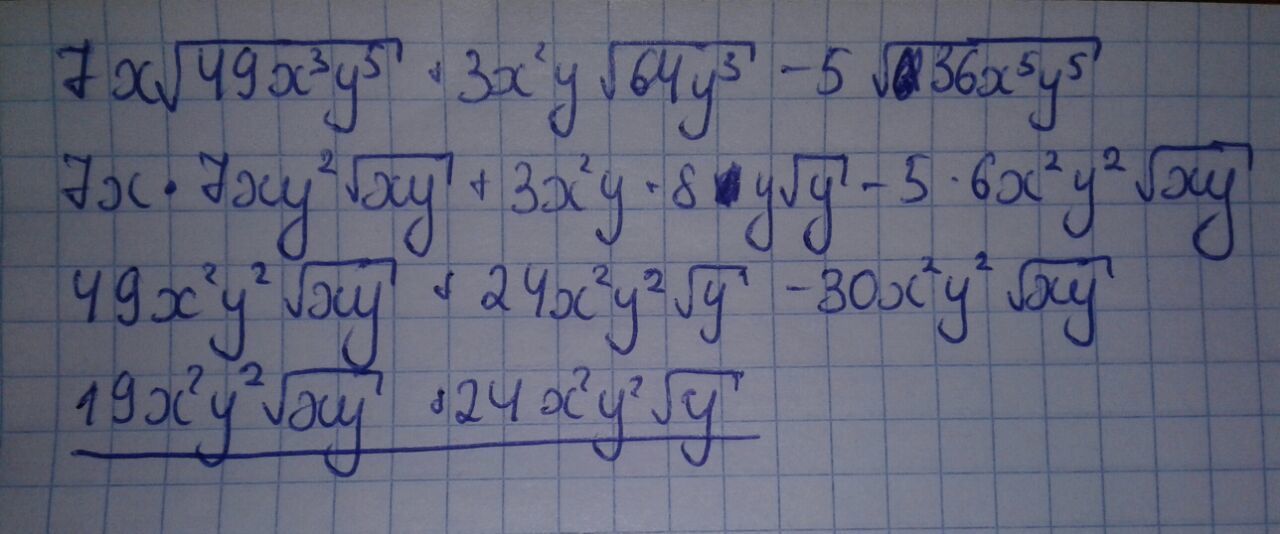 7x√(49x³y⁵) + 3x²y√(64y³) - 5√(36x⁵y⁵)
7x · 7xy²√(xy) + 3x²y · 8y√y - 5 · 6x²y²√(xy)
49x²y²√(xy) + 24x²y²√y - 30x²y²√(xy)
19x²y²√(xy) + 24x²y²√y